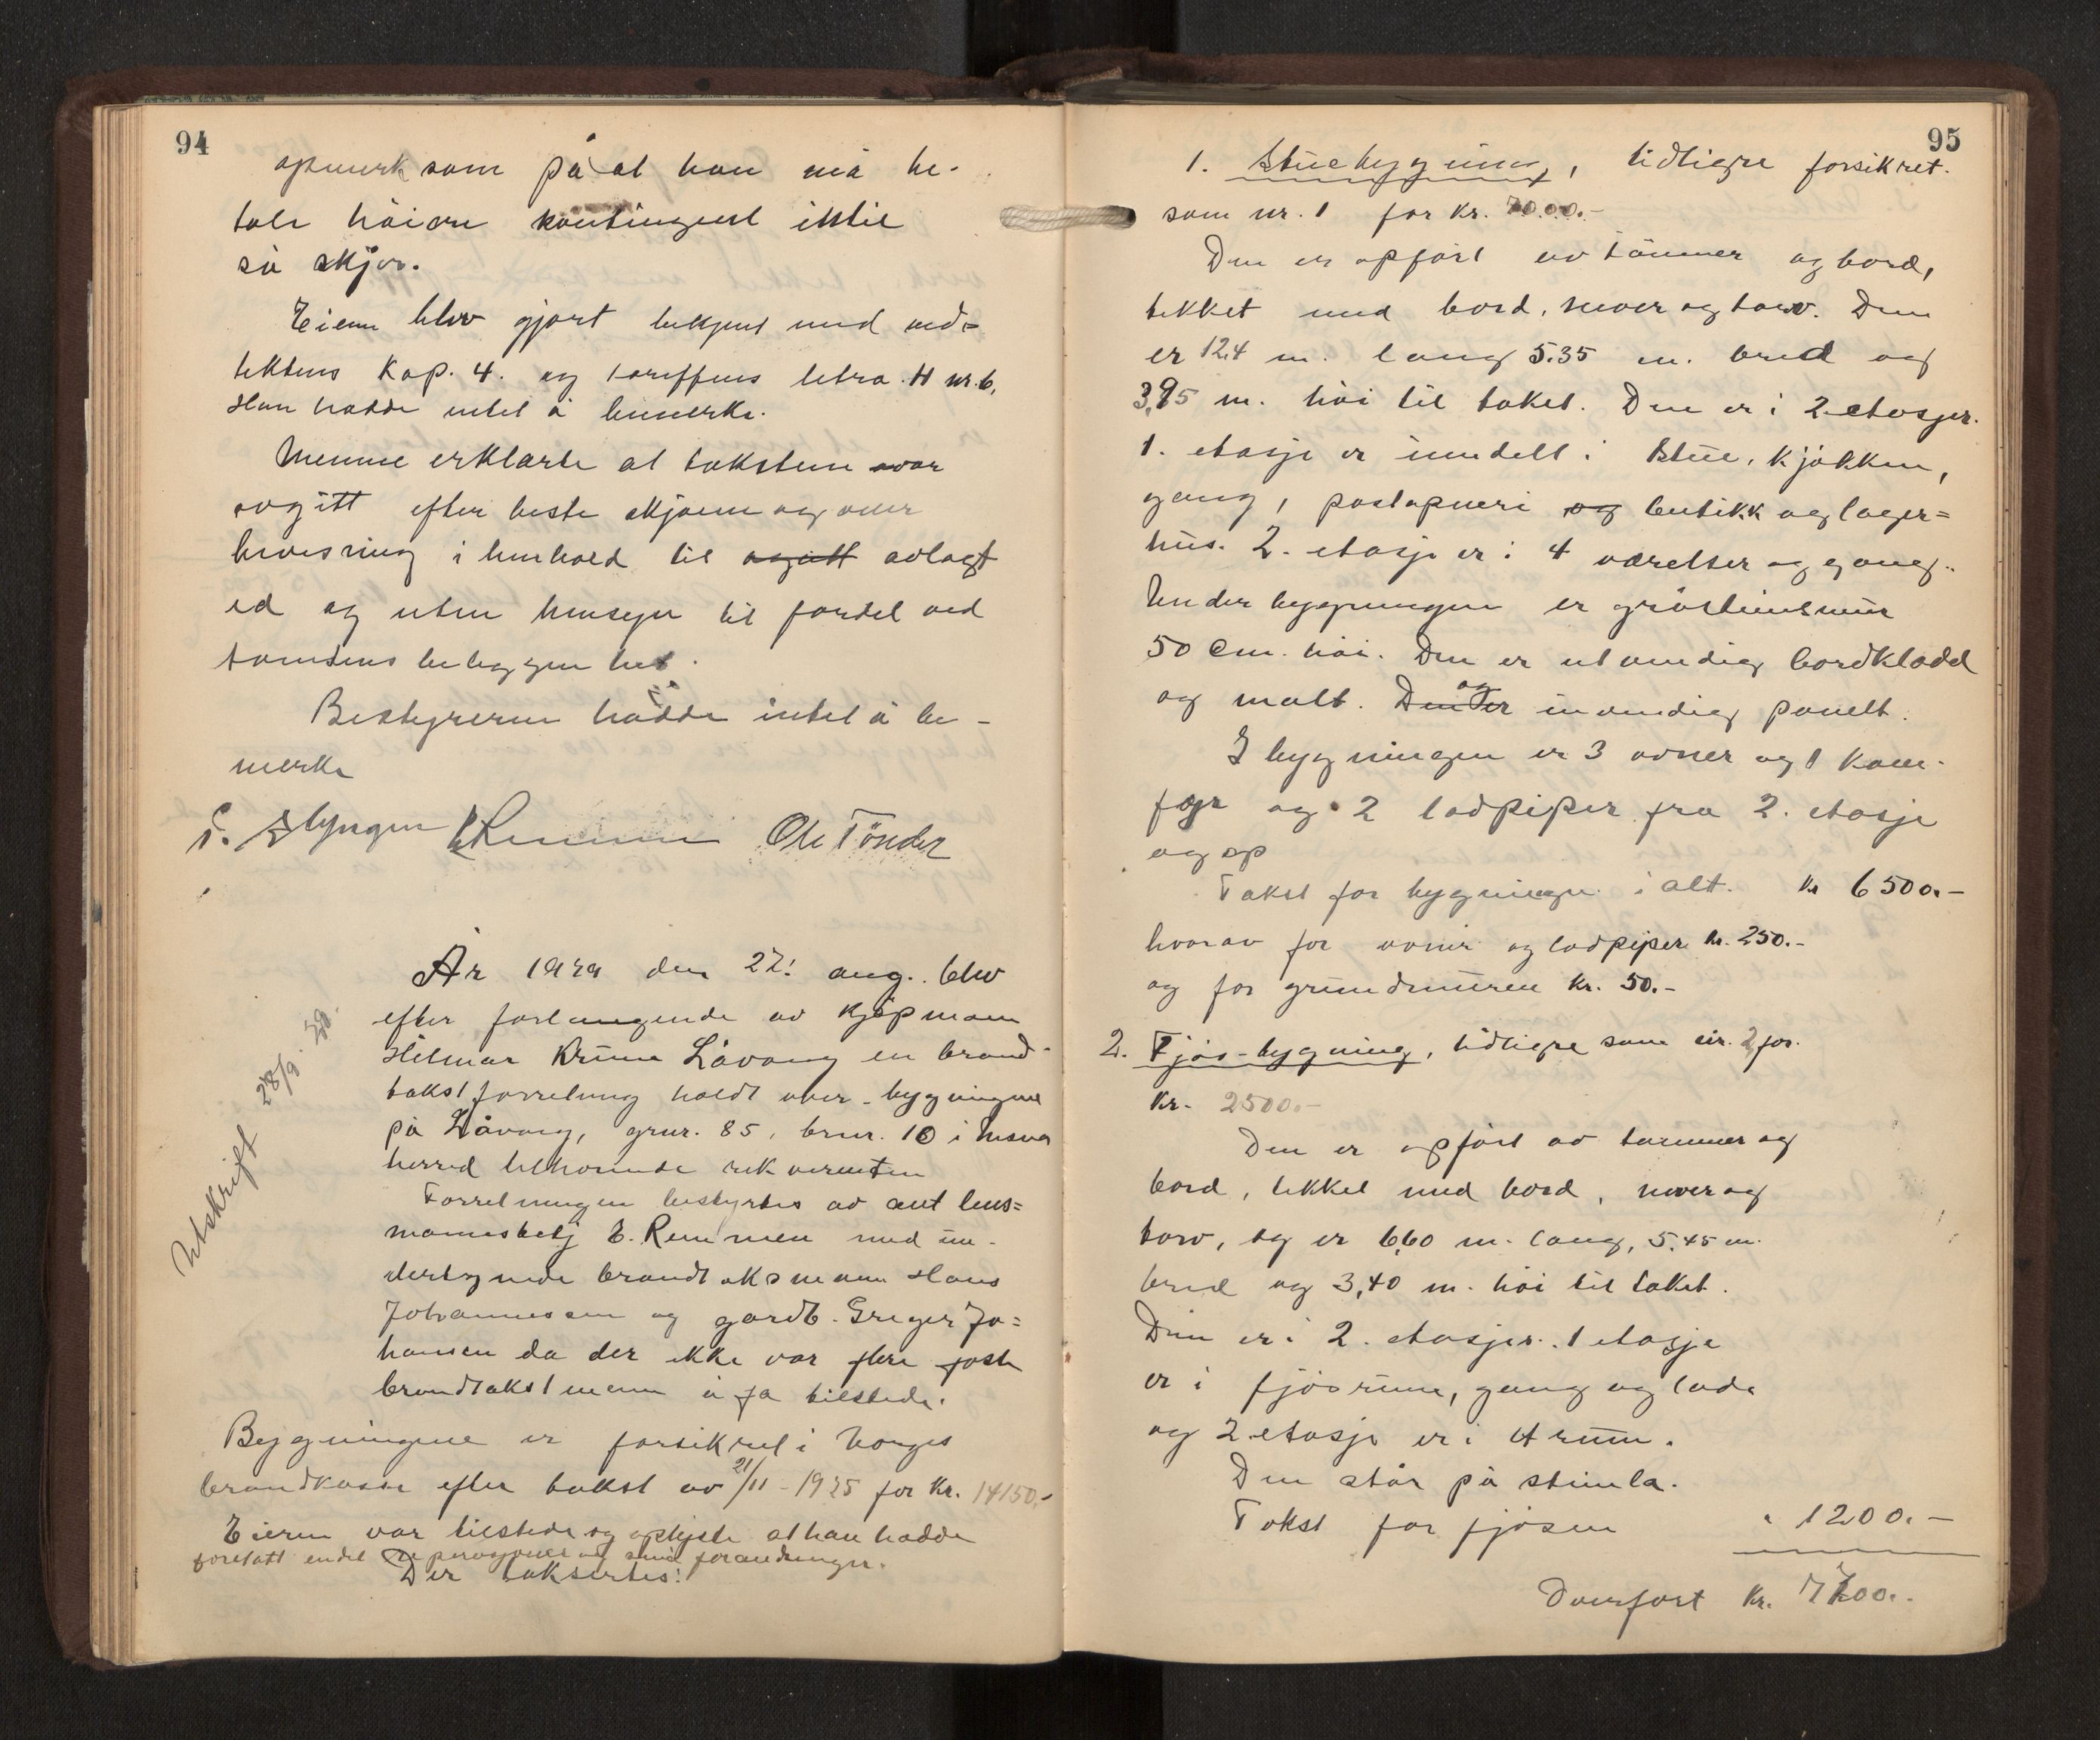 94
opmerksom på at han må be-
tale høiere kontingent inntil
så skjer.
Eieren blev gjort bekjent med ved-
tektens Kap. 4. og tariffens litra H nr. 6.
Han hadde intet å bemerke.
Mennene erklærte at taksten var
avgitt efter beste skjønn og over
bevisning i henhold til avgitt avlagt
ed og uten hensyn til fordel ved
tomtens beliggenhet.
Bestyreren hadde intet å be-
merke
Ole Tønder
År 1929 den 27. aug. blev
efter forlangende av kjøpmann
Hilmar Krune Låvong en brand-
takstforretning holdt over bygningene
på Låvong, gnr. 85, brnr. 10 i
herred tilhørende rekvirenten
Forretningen bestyrtes av aut lens-
mannsbetj E. Remmen med un-
dertegnede brandtaksmenn Hans
Johannessen og gardb. Greger Jo-
hansen da der ikke var flere faste
brandtakstmenn å få tilstede.
Bygningene er forsikret i Norges
brandkasse efter takst av 21/11 - 1925 for Kr. 14150.-
Eieren var tilstede og oplyste at han hadde
foretatt endel reparasjoner og små forandringer.
Der taksertes:
Utskrift 28/9. 29.
95
1. Stuebygning, tidligre forsikret
som nr. 1 for Kr. 7000.-
Den er opført av tømmer og bord,
tekket med bord, never og torv. Den
er 12.4 m. lang 5.35 m. bred og
3,95 m. høi til taket. Den er i 2 etasjer.
1. etasje er inndelt i stue, kjøkken,
gang, postopneri og butikk og lager-
hus. 2. etasje er i 4 værelser og gang.
Under bygningen er gråstensmur
50 cm. høi. Den er utvendig bordklædd
og malt. Den er og innvendig panelt.
I bygningen er 3 ovner og 1 kom-
fyr og 2 lodpiper fra 2. etasje
og op
Takst for bygningen i alt. Kr 6500.-
hvorav for ovner og lodpiper kr. 250.-
og for grundmuren kr. 50.-
2. Fjøs-bygning, tidligre som nr. 2 for
Kr. 2500.-
Den er opført av tømmer og
bord, tekket med bord, never og
torv, og er 6,60 m. lang, 5.45 m.
bred og 3,40 m. høi til taket.
Den er i 2. etasjer. 1 etasje
er i fjøsrum, gang og lade
og 2 etasje er i 4 rum.
Den står på steinla.
Takst for fjøsen " 1200.-
Overført Kr. 7700.-